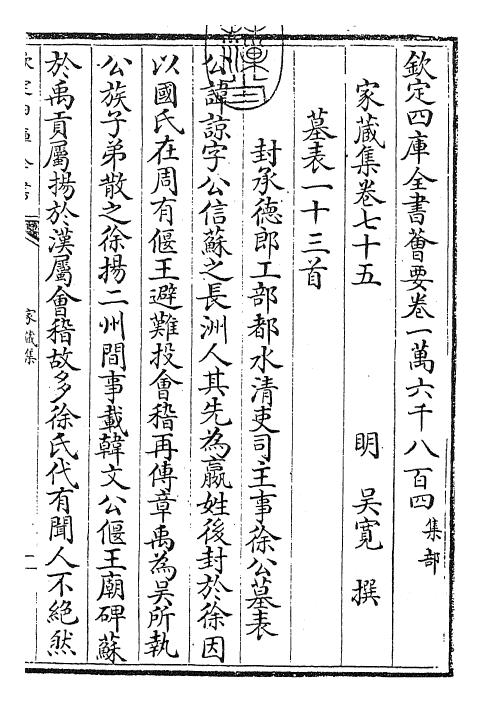 欽定四庫全書薈要卷一萬六千八百四集部
家藏集卷七十五
明吳寬撰
墓表一十三首
封承德郎工部都水清吏司主事徐公墓表
公諱諒字公信蘇之長洲人其先為嬴姓後封於徐因
以國氏在周有偃王避難投會稽再傳章禹為吳所執
公族子弟散之徐揚二州間事載韓文公偃王廟碑蘇
於禹貢屬揚於漢屬會稽故多徐氏代有聞人不絕然
家藏集